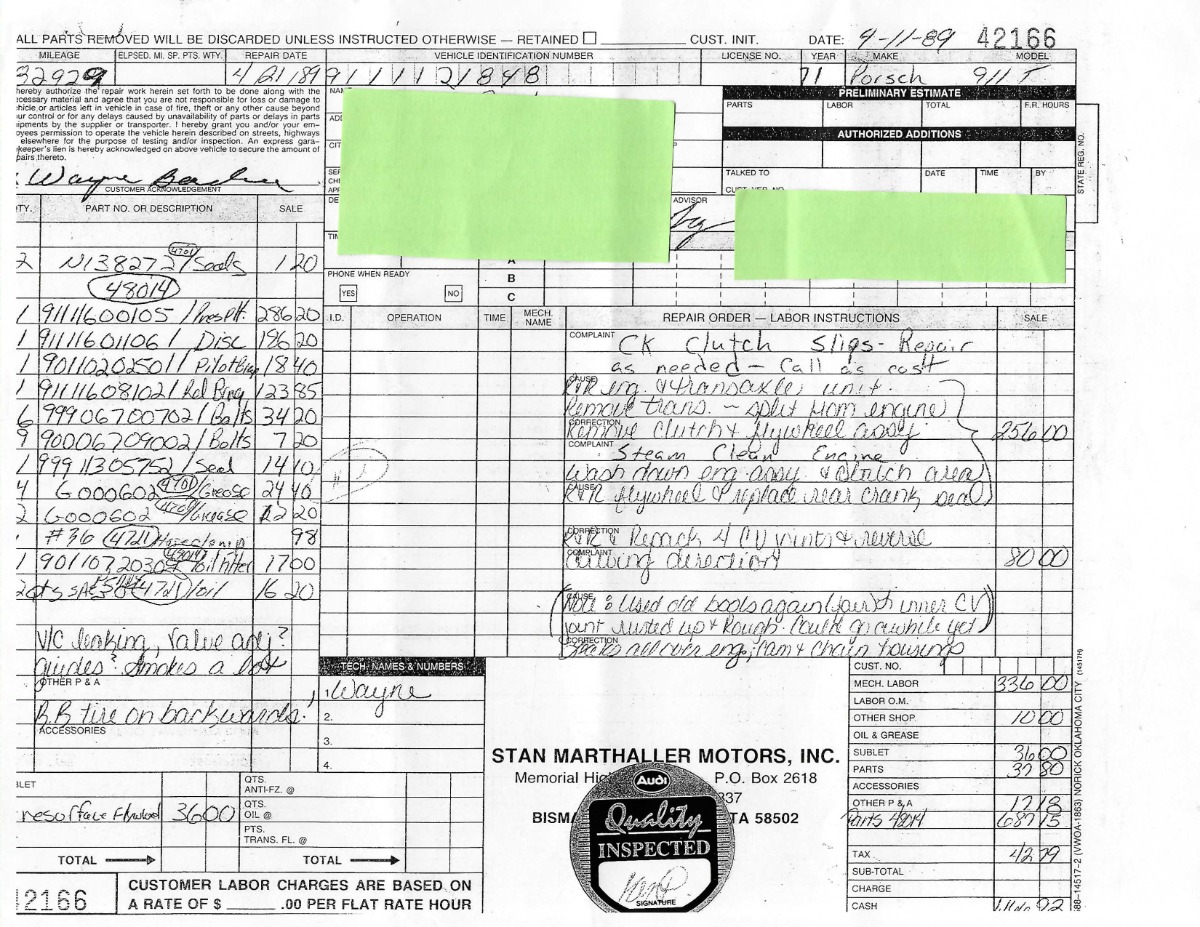 ALL PARTS REMOVED WILL BE DISCARDED UNLESS INSTRUCTED OTHERWISE — RETAINED CUST. INIT. DATE: 9-11-89 42166
MILEAGE ELPSED. MI. SP. PTS. WTY. REPAIR DATE VEHICLE IDENTIFICATION NUMBER LICENSE NO. YEAR MAKE MODEL
32929 4/21/89 9111121848 71 Porsch 911 T
hereby authorize the repair work herein set forth to be done along with the
cessary material and agree that you are not responsible for loss or damage to
hicle or articles left in vehicle in case of fire, theft or any other cause beyond
ur control or for any delays caused by unavailability of parts or delays in parts
ipments by the supplier or transporter. I hereby grant you and/or your em-
oyees permission to operate the vehicle herein described on streets, highways
elsewhere for the purpose of testing and/or inspection. An express gara-
keeper's lien is hereby acknowledged on above vehicle to secure the amount of
pairs thereto.
Wayne
CUSTOMER ACKNOWLEDGEMENT
PRELIMINARY ESTIMATE
PARTS LABOR TOTAL F.R. HOURS
AUTHORIZED ADDITIONS
TALKED TO DATE TIME BY
STATE REG. NO.
ADVISOR
TY. PART NO. OR DESCRIPTION SALE
2 N138272 4701 / Seals 1 20
48014
1 91111600105 / Pres Plt. 286 20
1 91111601106 / Disc 196 20
1 90110202501 / Pilot Brng 18 40
1 91111608102 / Rel Brng 123 85
6 99906700702 / Bolts 34 20
9 90006709002 / Bolts 7 20
1 99911305752 / Seal 14 10
4 G000602 4701 / Grease 24 40
2 G000602 4701 / Grease 12 20
#36 4721 Hoseclamp 98
1 90110720309 48014 oil filter 17 00
2 qts SAE 30 4721 / oil 16 20
V/C leaking, Valve adj?
guides? Smokes a lot
OTHER P & A
R.R tire on backwards!
ACCESSORIES
PHONE WHEN READY
YES NO
A
B
C
I.D. OPERATION TIME MECH. NAME REPAIR ORDER — LABOR INSTRUCTIONS SALE
COMPLAINT CK Clutch Slips - Repair
as needed - Call as cost
CAUSE R&R eng & transaxle unit.
Remove trans. - split from engine
CORRECTION Remove clutch & flywheel assy. 256 00
COMPLAINT Steam Clean Engine
Wash down eng assy. & clutch area
CAUSE R&R flywheel & replace rear crank seal
CORRECTION R&R & Repack 4 CV joints & reverse
COMPLAINT driving direction 80 00
CAUSE Note: Used old boots again (fair) & inner CV
joint rusted up & Rough. Could go awhile yet
CORRECTION Leaks all over eng, cam & chain housings
TECH. NAMES & NUMBERS
1. Wayne
2.
3.
4.
LET
resurface Flywheel 36 00
QTS. ANTI-FZ. @
QTS. OIL @
PTS. TRANS. FL. @
TOTAL TOTAL
42166
CUSTOMER LABOR CHARGES ARE BASED ON
A RATE OF $ .00 PER FLAT RATE HOUR
STAN MARTHALLER MOTORS, INC.
Memorial Hig P.O. Box 2618
337
BISMA TA 58502
Audi
Quality
INSPECTED
SIGNATURE
CUST. NO.
MECH. LABOR 336 00
LABOR O.M.
OTHER SHOP 10 00
OIL & GREASE
SUBLET 36 00
PARTS 37 80
ACCESSORIES
OTHER P & A 17 18
Parts 48014 687 15
TAX 42 79
SUB-TOTAL
CHARGE
CASH
88-14517-2 (VWOA-1863) NORICK OKLAHOMA CITY (14517H)